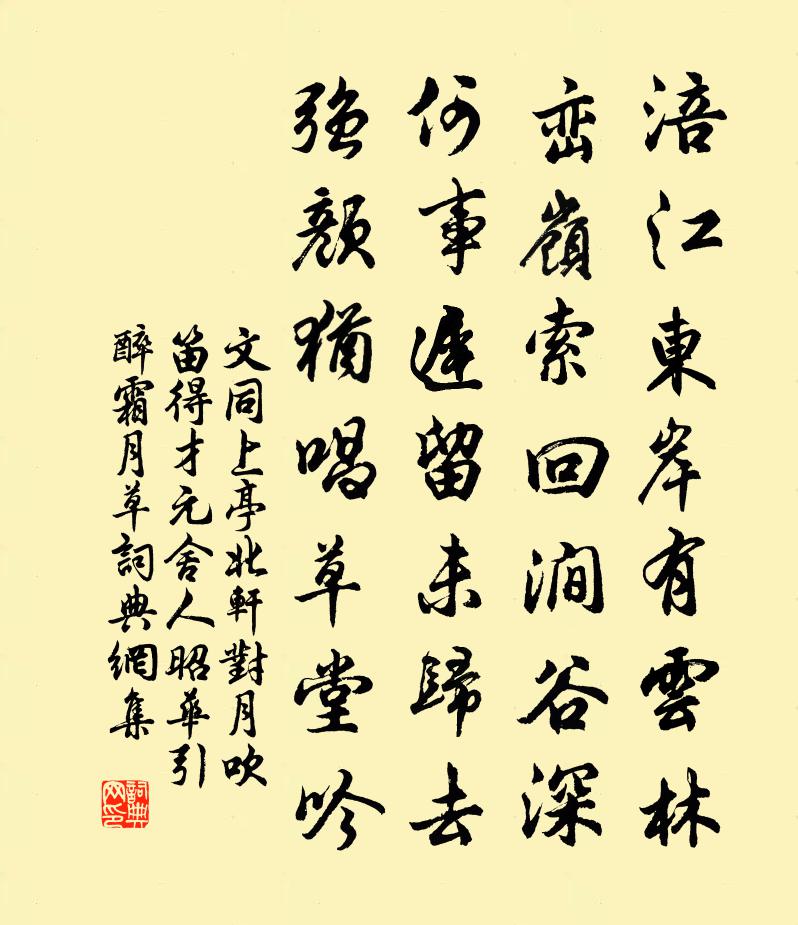 涪江東岸有雲林
巒嶺索回澗谷深
何事遲留未歸去
強顏猶唱草堂吟
文同上亭北軒對月吹
笛得才元舍人昭華引
醉霜月草詞典網集
詞典网印